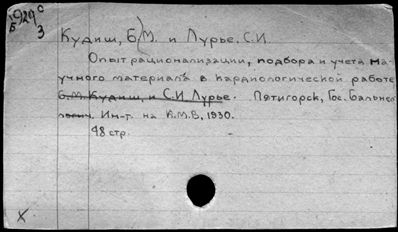 1929 с
Б 3
Кудиш, Б.М. и Лурье, С.И.
Опыт рационализации, подбора и учета на-
учного материала в кардиологической работе
Б.М. Кудиш, и С.И. Лурье. Пятигорск, Гос. Бальнео-
логич. Ин-т на К.М.В, 1930.
48 стр.
X